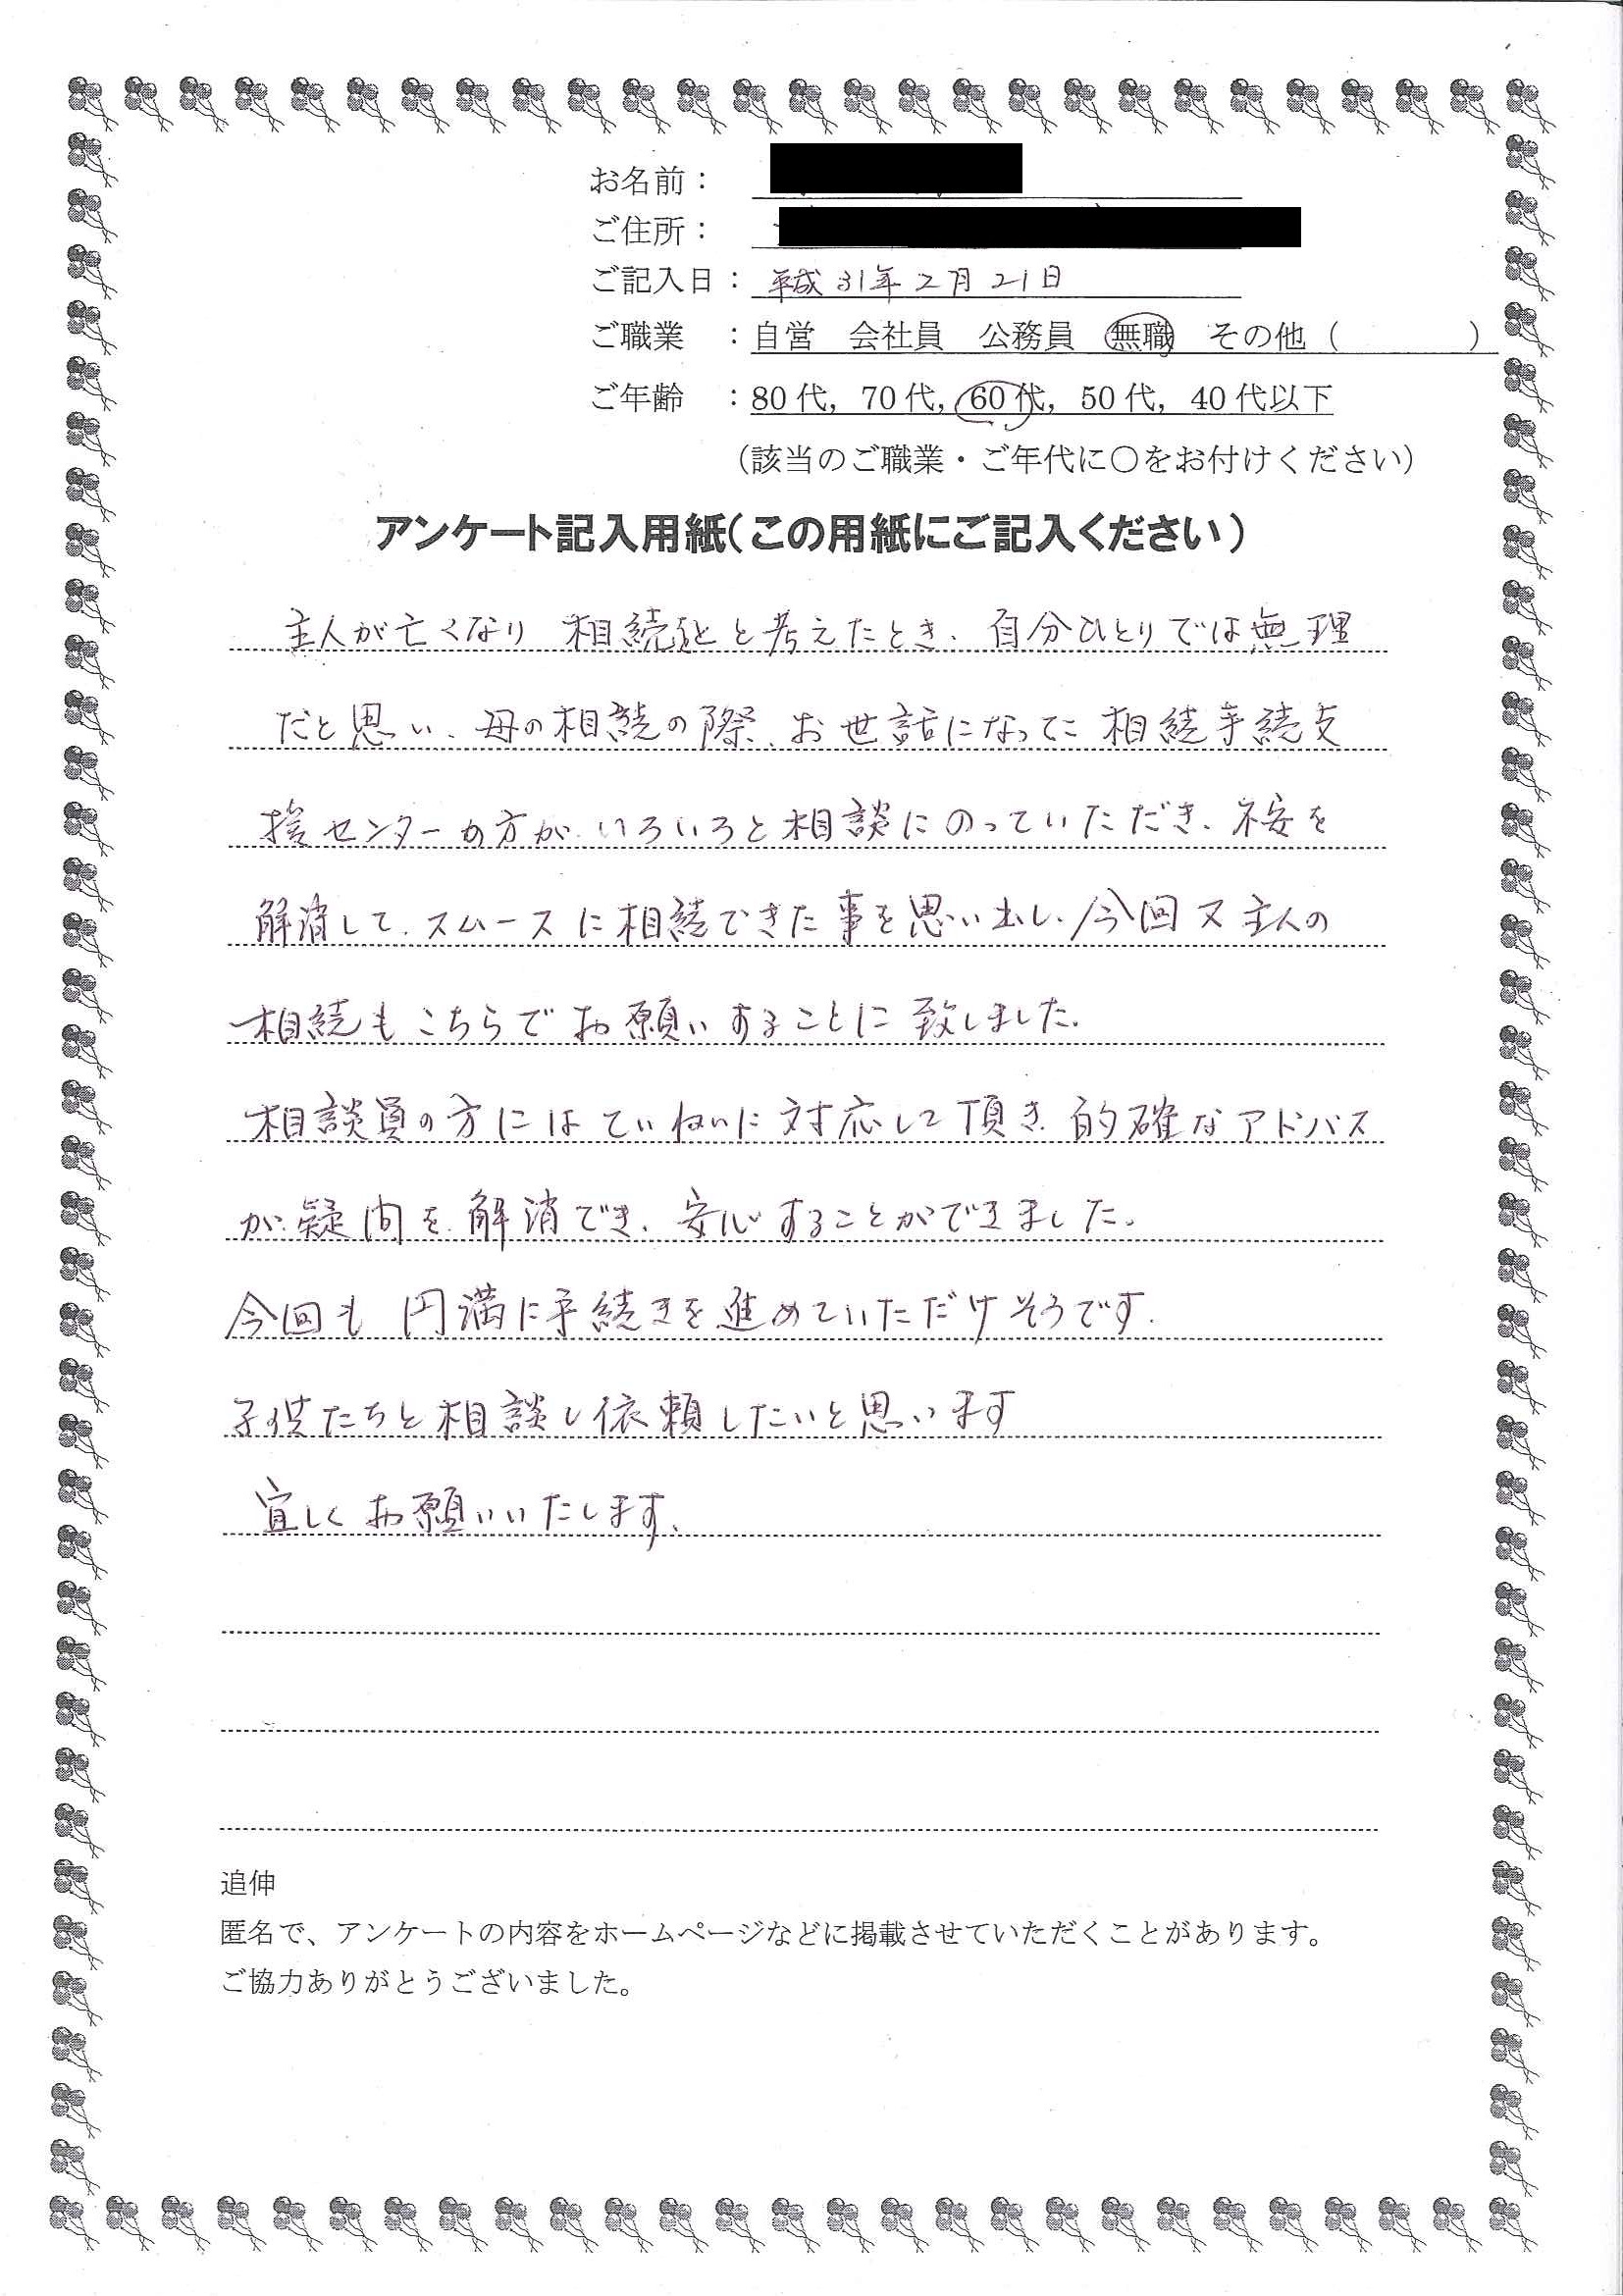 お名前：
ご住所：
ご記入日：平成31年2月21日
ご職業　：自営　会社員　公務員　無職　その他（　　　　）
ご年齢　：80代，70代，60代，50代，40代以下
（該当のご職業・ご年代に〇をお付けください）
アンケート記入用紙（この用紙にご記入ください）
主人が亡くなり 相続をと考えたとき、自分ひとりでは無理
だと思い、母の相続の際、お世話になってに 相続手続支
援センターの方が、いろいろと相談にのっていただき、不安を
解消して、スムースに相続できた事を思い出し、今回又主人の
相続もこちらでお願いすることに致しました。
相談員の方にはていねいに対応して頂き、的確なアドバス
が疑問を解消でき、安心することができました。
今回も 円満に手続きを進めていただけそうです。
子供たちと相談し依頼したいと思います
宜しくお願いいたします。
追伸
匿名で、アンケートの内容をホームページなどに掲載させていただくことがあります。
ご協力ありがとうございました。